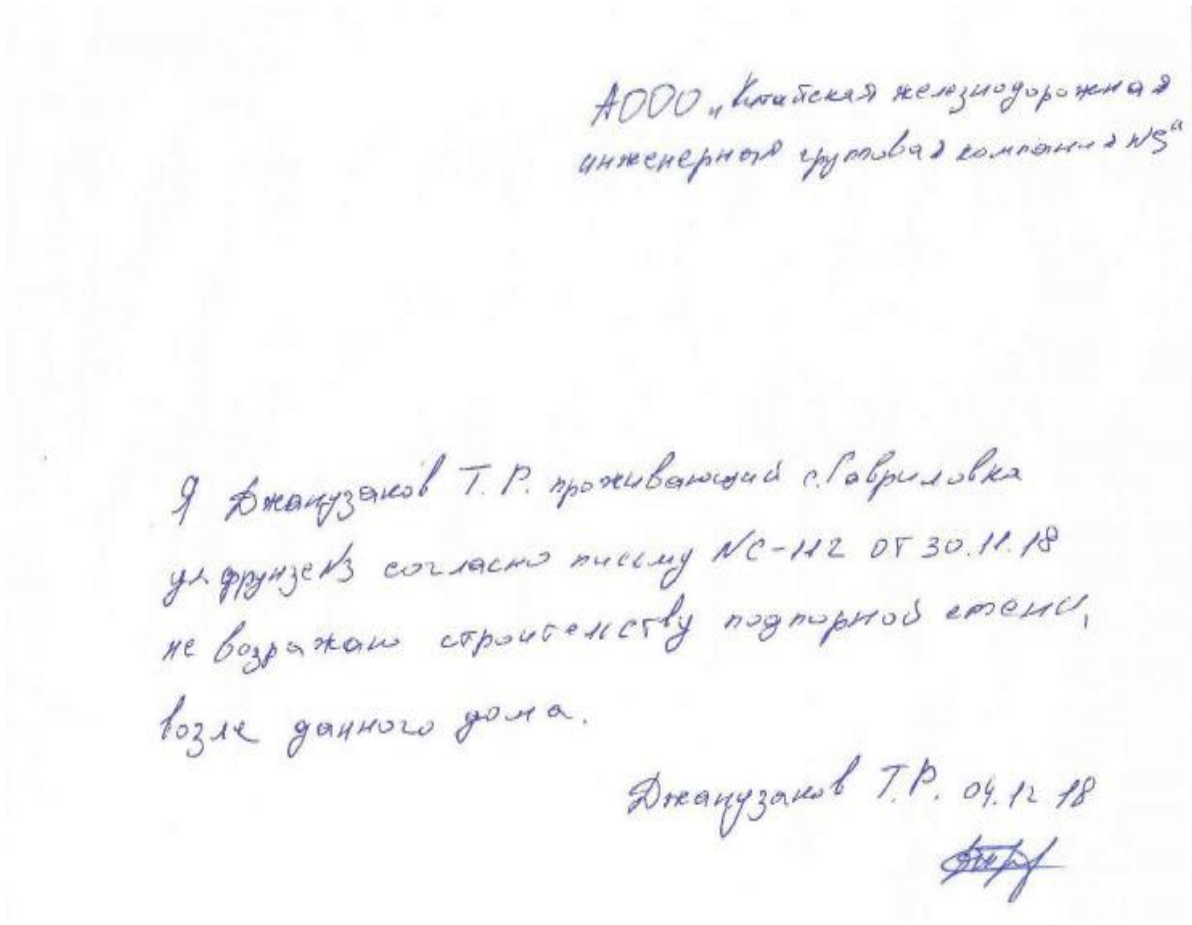 АООО „Китайская железнодорожная
инженерная групповая компания №5"
Я Джанузаков Т.Р. проживающий с.Гавриловка
ул фрунзе №3 согласно письму №С-112 от 30.11.18
не возражаю строительству подпорной стены,
возле данного дома.
Джанузаков Т.Р. 04.12 18